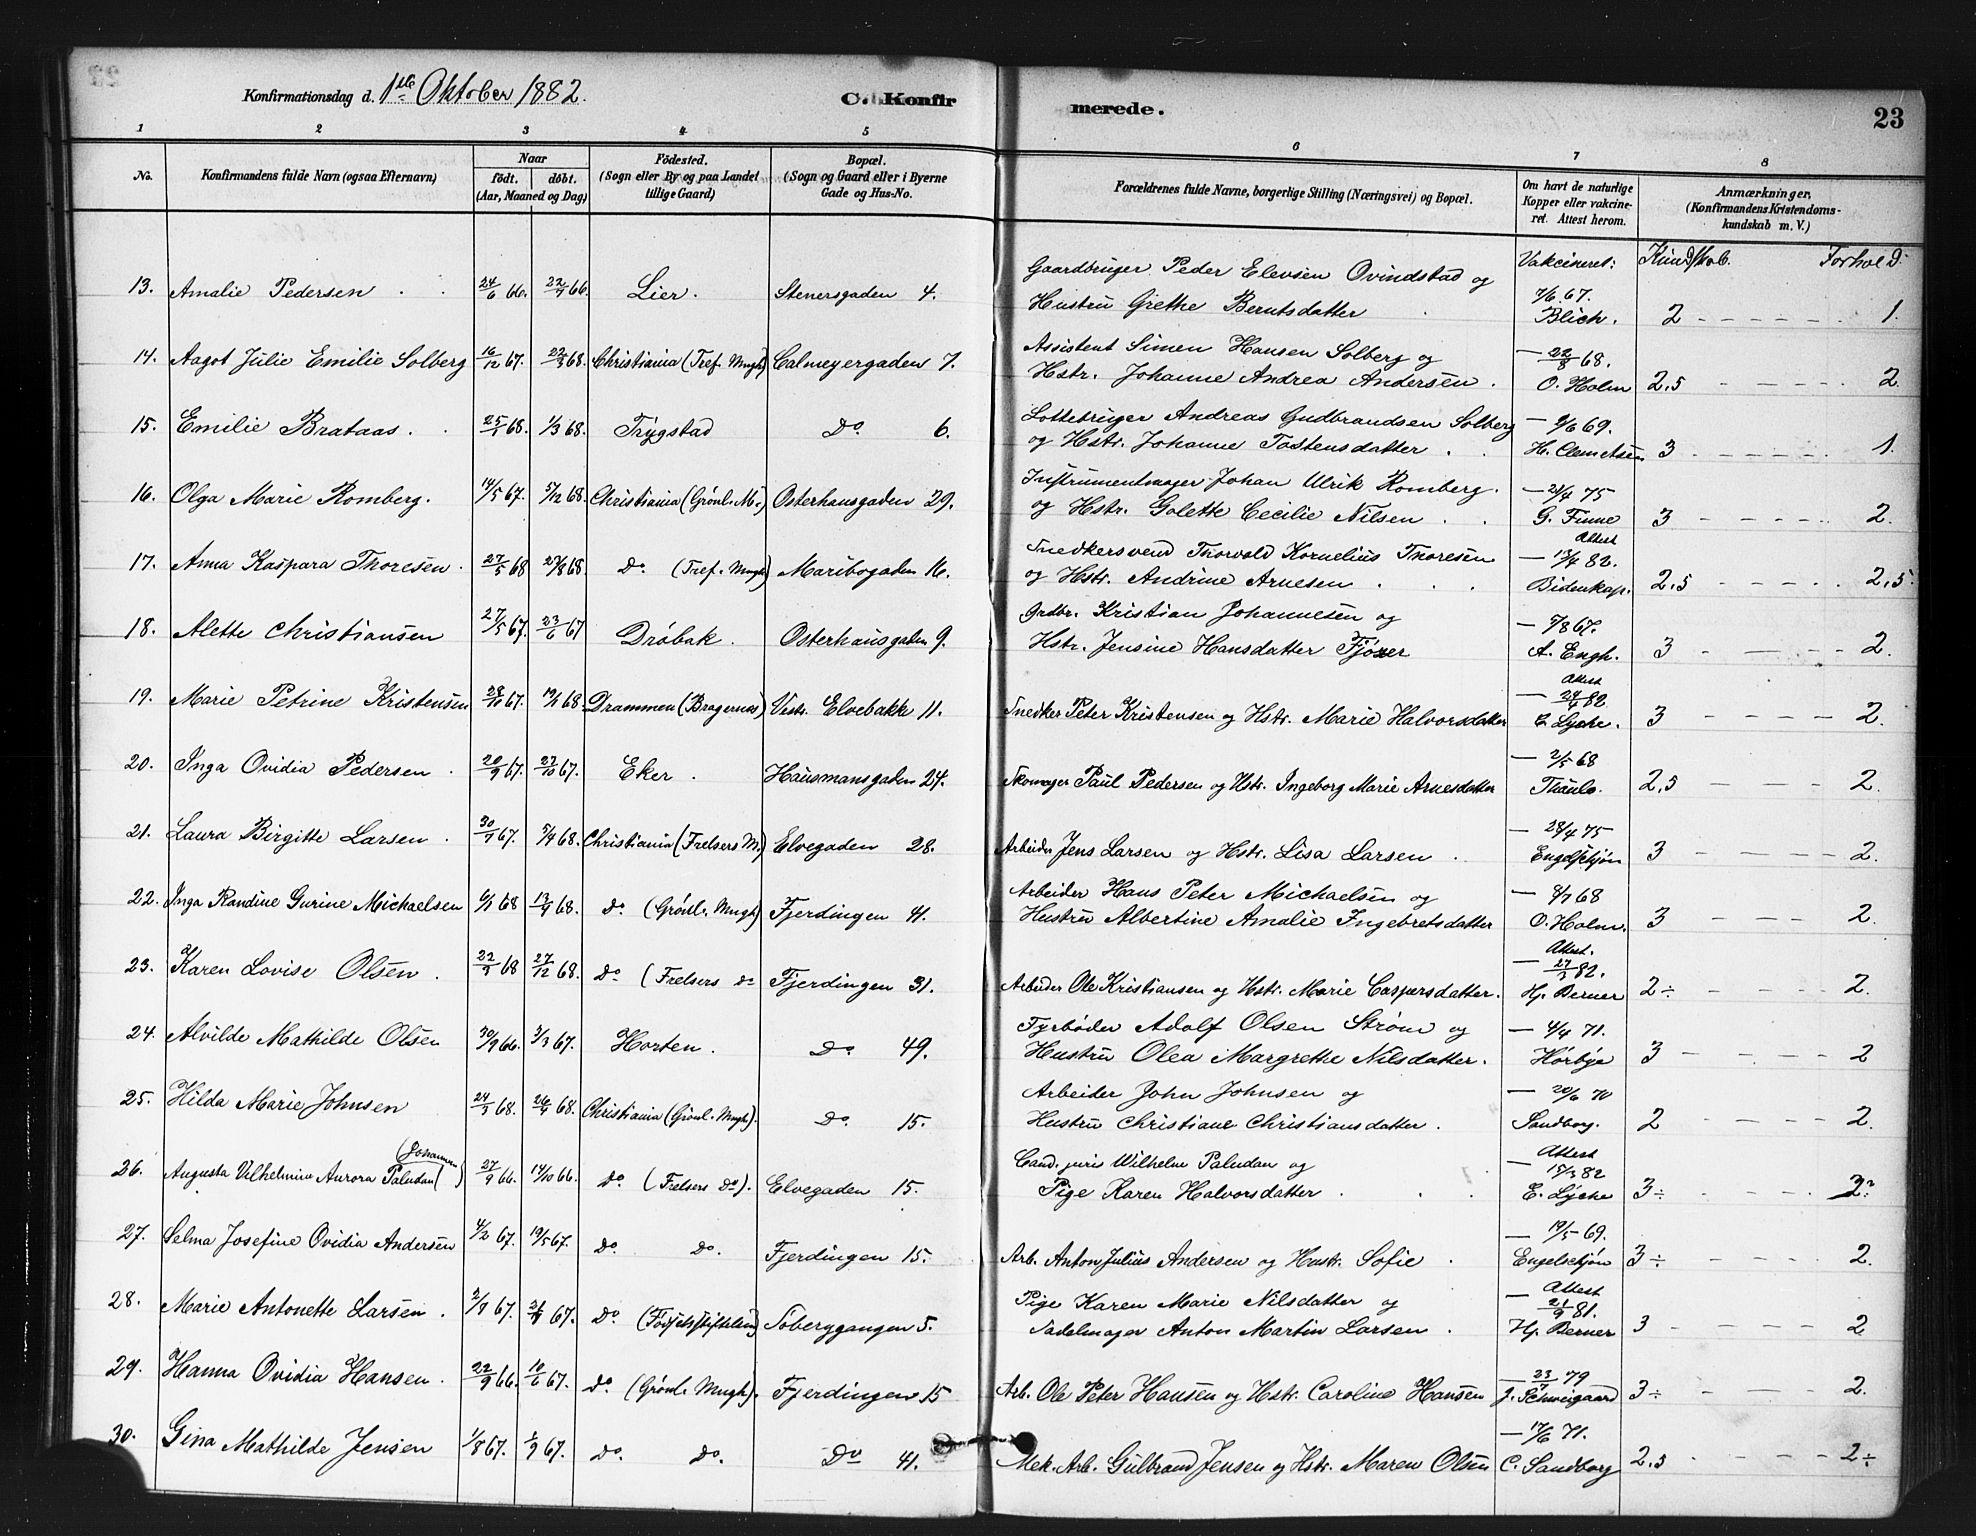 Konfirmationsdag d. 1ste Oktober 1882. C. Konfirmerede. 23
1 2 3 4 5 6 7 8
No. Konfirmandens fulde Navn (ogsaa Efternavn) Naar födt. döbt. (Aar, Maaned og Dag) Födested. (Sogn eller By og paa Landet tillige Gaard) Bopæl. (Sogn og Gaard eller i Byerne Gade og Hus-No. Forældrenes fulde Navne, borgerlige Stilling (Næringsvei) og Bopæl. Om havt de naturlige Kopper eller vakcineret. Attest herom. Anmærkninger, (Konfirmandens Kristendomskundskab m. V.)
Vakcineret: Kundskab. Forhold.
13. Amalie Pedersen 24/6 66. 22/7 66. Lier. Stenersgaden 4. Gaardbruger Peder Elevsen Ovindstad og
Hustru Grethe Berntsdatter 7/6 67. Blich. 2 1.
14. Aagot Julie Emilie Solberg 16/12 67. 22/3 68. Christiania (Tref. Mngh) Calmeyergaden 7. Assistent Simen Hansen Solberg og
Hstr. Johanne Andrea Andersen. — 22/8 68. O. Holm 2,5 2.
15. Emilie Brataas. 25/1 68. 1/3 68. Trygstad Do. 6. Lottebruger Andreas Gudbrandsen Solberg
og Hstr. Johanne Tostensdatter. — 9/6 69. H. Clemetsen 3 1.
16. Olga Marie Romberg. 14/5 67. 5/12 68. Christiania (Grönl. M.) Osterhausgaden 29. Instrumentmager Johan Ulrik Romberg.
og Hstr. Golette Cecilie Nilsen. — 21/4 75 G. Finne 3 2.
17. Anna Kaspara Thoresen. 27/5 68 23/8 68. Do. (Tref. Mngh) Maribogaden 16. Snedkersvend Thorvald Kornelius Thoresen
og Hstr. Andrine Arnesen. Attest — 17/4 82. Bidenkap. 2,5 2,5.
18. Alette Christiansen 27/5 67. 23/6 67 Dröbak. Osterhausgaden 9. Grdbr. Kristian Johannesen og
Hstr. Jensine Hansdatter Fjöser — 7/8 67. A. Engh. 3 2.
19. Marie Petrine Kristensen 28/10 67. 19/1 68. Drammen (Bragernæs) Vestr. Elvebakke 11. Snedker Peter Kristensen og Hstr. Marie Halvorsdatter Attest — 24/4 82. E. Lyche. 3 2.
20. Inga Ovidia Pedersen. 20/9 67. 27/10 67. Eker. Hausmansgaden 24. Skomager Paul Pedersen og Hstr. Ingeborg Marie Arnesdatter — 2/5 68 Thaulo. 2,5 2.
21. Laura Birgitte Larsen. 30/7 67. 5/4 68. Christiania (Frelsers M.) Elvegaden 28. Arbeider Jens Larsen og Hstr. Lisa Larsen. — 28/4 75 Engelschjön 3 2.
22. Inga Randine Gurine Michaelsen 6/1 68 13/4 68. Do (Grönl. Mngh) Fjerdingen 41. Arbeider Hans Peter Michaelsen og
Hustru Albertine Amalie Ingebretsdatter — 8/7 68 O. Holm. 3 2.
23. Karen Lovise Olsen. 22/3 68 27/12 68. Do (Frelsers do Fjerdingen 31. Arbeider Ole Kristiansen og Hstr. Marie Caspersdatter. Attest. — 27/3 82. Hj. Berner 2÷ 2.
24. Alvilde Mathilde Olsen 30/9 66. 3/3 67. Horten. Do. 49. Fyrböder Adolf Olsen Ström og
Hustru Olea Margrethe Nilsdatter. — 4/4 71. Hörbye 3 2
25. Hilda Marie Johnsen 24/3 68. 26/4 68. Christiania (Grönl. Mngh). Do. 15. Arbeider John Johnsen og
Hustru Christiane Christiansdatter. — 20/6 70 Sandborg. 2 2.
26. Augusta Vilhelmine Aurora Paludan (Johannen) 27/9 66. 14/10 66. Do. (Frelsers Do). Elvegaden 15. Cand. juris Wilhelm Paludan og
Pige Karen Halvorsdatter. Attest — 15/3 82 E. Lyche 3÷ 2?
27. Selma Josefine Ovidia Andersen 4/2 67. 19/5 67. Do. Do. Fjerdingen 15. Arb. Anton Julius Andersen og Hustr. Sofie. — 19/5 69. Engelschjön 3÷ 2.
28. Marie Antonette Larsen. 2/7 67. 67. Do (Födselsstiftelsen) Tobergangen 5. Pige Karen Marie Nilsdatter og
Sadelmager Anton Martin Larsen. Attest — 21/9 81. Hj. Berner 3 2
29. Hanna Ovidia Hansen. 22/9 66. 10/6 67. Do. (Grönl. Mngh). Fjerdingen 15 Arb. Ole Peter Hansen og Hstr. Caroline Hansen — 23/7 79 J. Schweigaard 3÷ 2.
30. Gina Mathilde Jensen 1/8 67. 1/9 67. Do. Do. Do 41. Mek. Arb. Gulbrand Jensen og Hstr. Maren Olsen — 17/6 71. C. Sandborg 2,5 2÷